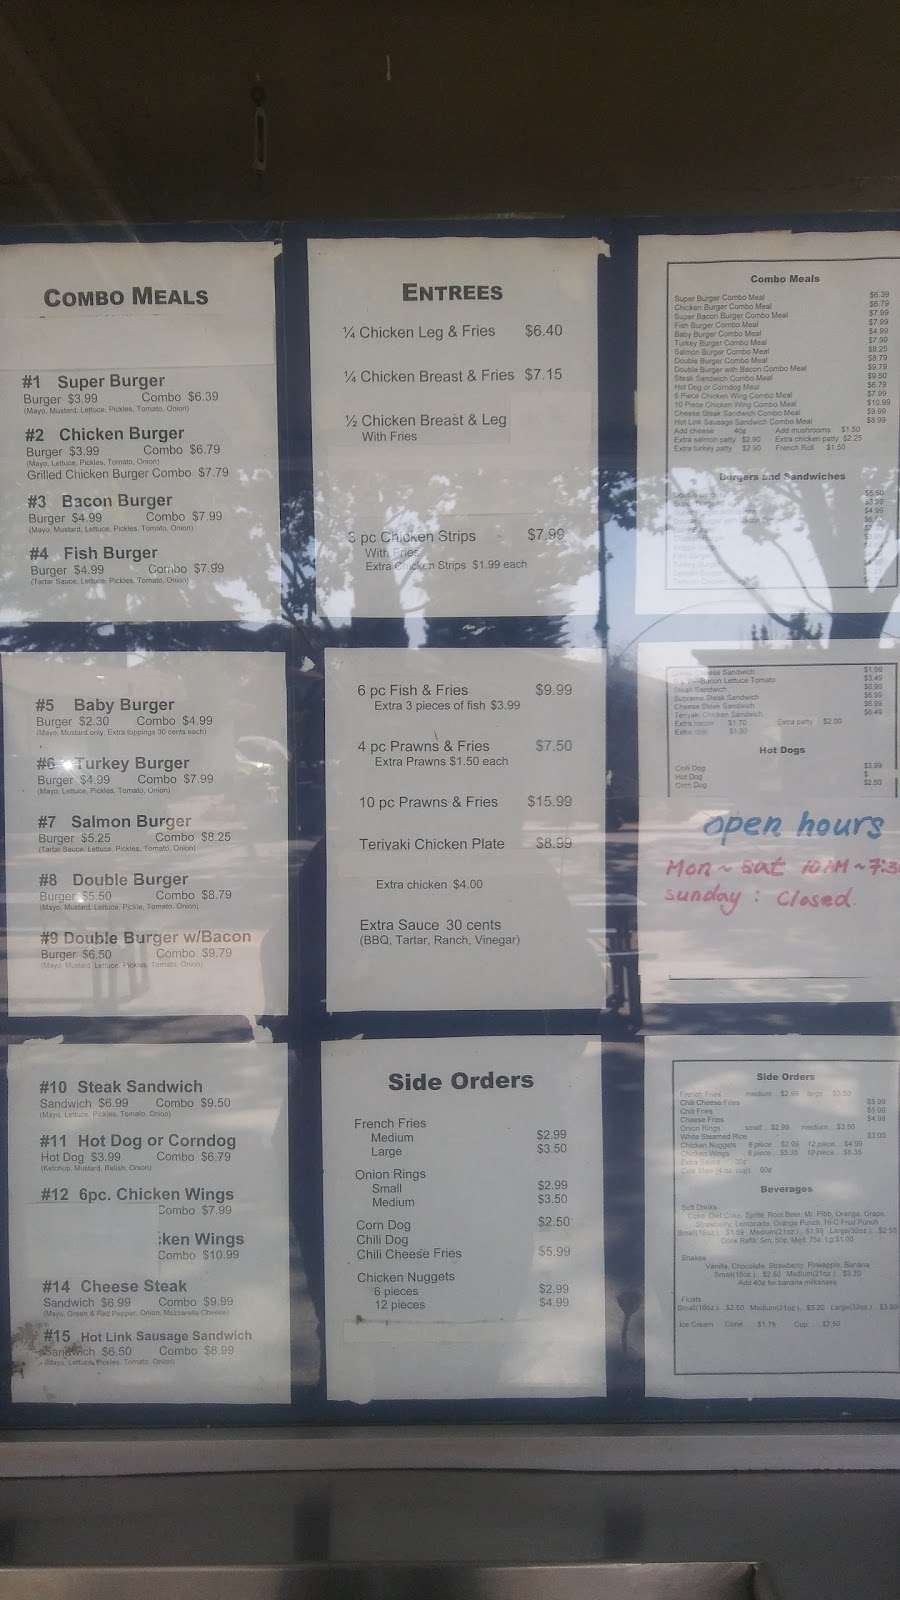 COMBO MEALS
#1 Super Burger
Burger $3.99 Combo $6.39
(Mayo, Mustard, Lettuce, Pickles, Tomato, Onion)
#2 Chicken Burger
Burger $3.99 Combo $6.79
(Mayo, Lettuce, Pickles, Tomato, Onion)
Grilled Chicken Burger Combo $7.79
#3 Bacon Burger
Burger $4.99 Combo $7.99
(Mayo, Mustard, Lettuce, Pickles, Tomato, Onion)
#4 Fish Burger
Burger $4.99 Combo $7.99
(Tartar Sauce, Lettuce, Pickles, Tomato, Onion)
#5 Baby Burger
Burger $2.30 Combo $4.99
(Mayo, Mustard only, Extra toppings 30 cents each)
#6 Turkey Burger
Burger $4.99 Combo $7.99
(Mayo, Lettuce, Pickles, Tomato, Onion)
#7 Salmon Burger
Burger $5.25 Combo $8.25
(Tartar Sauce, Lettuce, Pickles, Tomato, Onion)
#8 Double Burger
Burger $5.50 Combo $8.79
(Mayo, Mustard, Lettuce, Pickle, Tomato, Onion)
#9 Double Burger w/Bacon
Burger $6.50 Combo $9.79
(Mayo, Mustard, Lettuce, Pickles, Tomato, Onion)
#10 Steak Sandwich
Sandwich $6.99 Combo $9.50
(Mayo, Lettuce, Pickles, Tomato, Onion)
#11 Hot Dog or Corndog
Hot Dog $3.99 Combo $6.79
(Ketchup, Mustard, Relish, Onion)
#12 6pc. Chicken Wings
Combo $7.99
ken Wings
Combo $10.99
#14 Cheese Steak
Sandwich $6.99 Combo $9.99
(Mayo, Green & Red Pepper, Onion, Mozzarella Cheese)
#15 Hot Link Sausage Sandwich
Sandwich $6.50 Combo $8.99
(Mayo, Lettuce, Pickles, Tomato, Onion)
ENTREES
¼ Chicken Leg & Fries $6.40
¼ Chicken Breast & Fries $7.15
½ Chicken Breast & Leg
With Fries
3 pc Chicken Strips $7.99
With Fries
Extra Chicken Strips $1.99 each
6 pc Fish & Fries $9.99
Extra 3 pieces of fish $3.99
4 pc Prawns & Fries $7.50
Extra Prawns $1.50 each
10 pc Prawns & Fries $15.99
Teriyaki Chicken Plate $8.99
Extra chicken $4.00
Extra Sauce 30 cents
(BBQ, Tartar, Ranch, Vinegar)
Side Orders
French Fries
Medium $2.99
Large $3.50
Onion Rings
Small $2.99
Medium $3.50
Corn Dog $2.50
Chili Dog
Chili Cheese Fries $5.99
Chicken Nuggets
6 pieces $2.99
12 pieces $4.99
Combo Meals
Super Burger Combo Meal $6.39
Chicken Burger Combo Meal $6.79
Super Bacon Burger Combo Meal $7.99
Fish Burger Combo Meal $7.99
Baby Burger Combo Meal $4.99
Turkey Burger Combo Meal $7.99
Salmon Burger Combo Meal $8.25
Double Burger Combo Meal $8.79
Double Burger with Bacon Combo Meal $9.79
Steak Sandwich Combo Meal $9.50
Hot Dog or Corndog Meal $6.79
6 Piece Chicken Wing Combo Meal $7.99
10 Piece Chicken Wing Combo Meal $10.99
Cheese Steak Sandwich Combo Meal $9.99
Hot Link Sausage Sandwich Combo Meal $8.99
Add cheese 40¢ Add mushrooms $1.50
Extra salmon patty $2.90 Extra chicken patty $2.25
Extra turkey patty $2.90 French Roll $1.50
Burgers and Sandwiches
Sandwich
Bacon Lettuce Tomato $3.49
Steak Sandwich
Supreme Steak Sandwich
Cheese Steak Sandwich
Teriyaki Chicken Sandwich
Extra bacon $1.70 Extra patty $2.00
Hot Dogs
Chili Dog $3.99
Hot Dog $
Corn Dog $2.50
open hours
Mon ~ Sat 10AM ~ 7:3
Sunday : Closed.
Side Orders
French Fries medium $2.99 large $3.50
Chili Cheese Fries $5.99
Chili Fries
Cheese Fries $4.99
Onion Rings small $2.99 medium $3.50
White Steamed Rice
Chicken Nuggets 6 piece $2.99 12 piece $4.99
Chicken Wings
Extra Sauce
Beverages
Soft Drinks
Coke, Diet Coke, Sprite, Root Beer, Mr. Pibb, Orange, Grape,
Strawberry, Lemonade, Orange Punch, Hi-C Fruit Punch
Shakes
Vanilla, Chocolate, Strawberry, Pineapple, Banana
Add 40¢ for banana milkshake
Floats
Ice Cream Cone $1.75 Cup $2.50